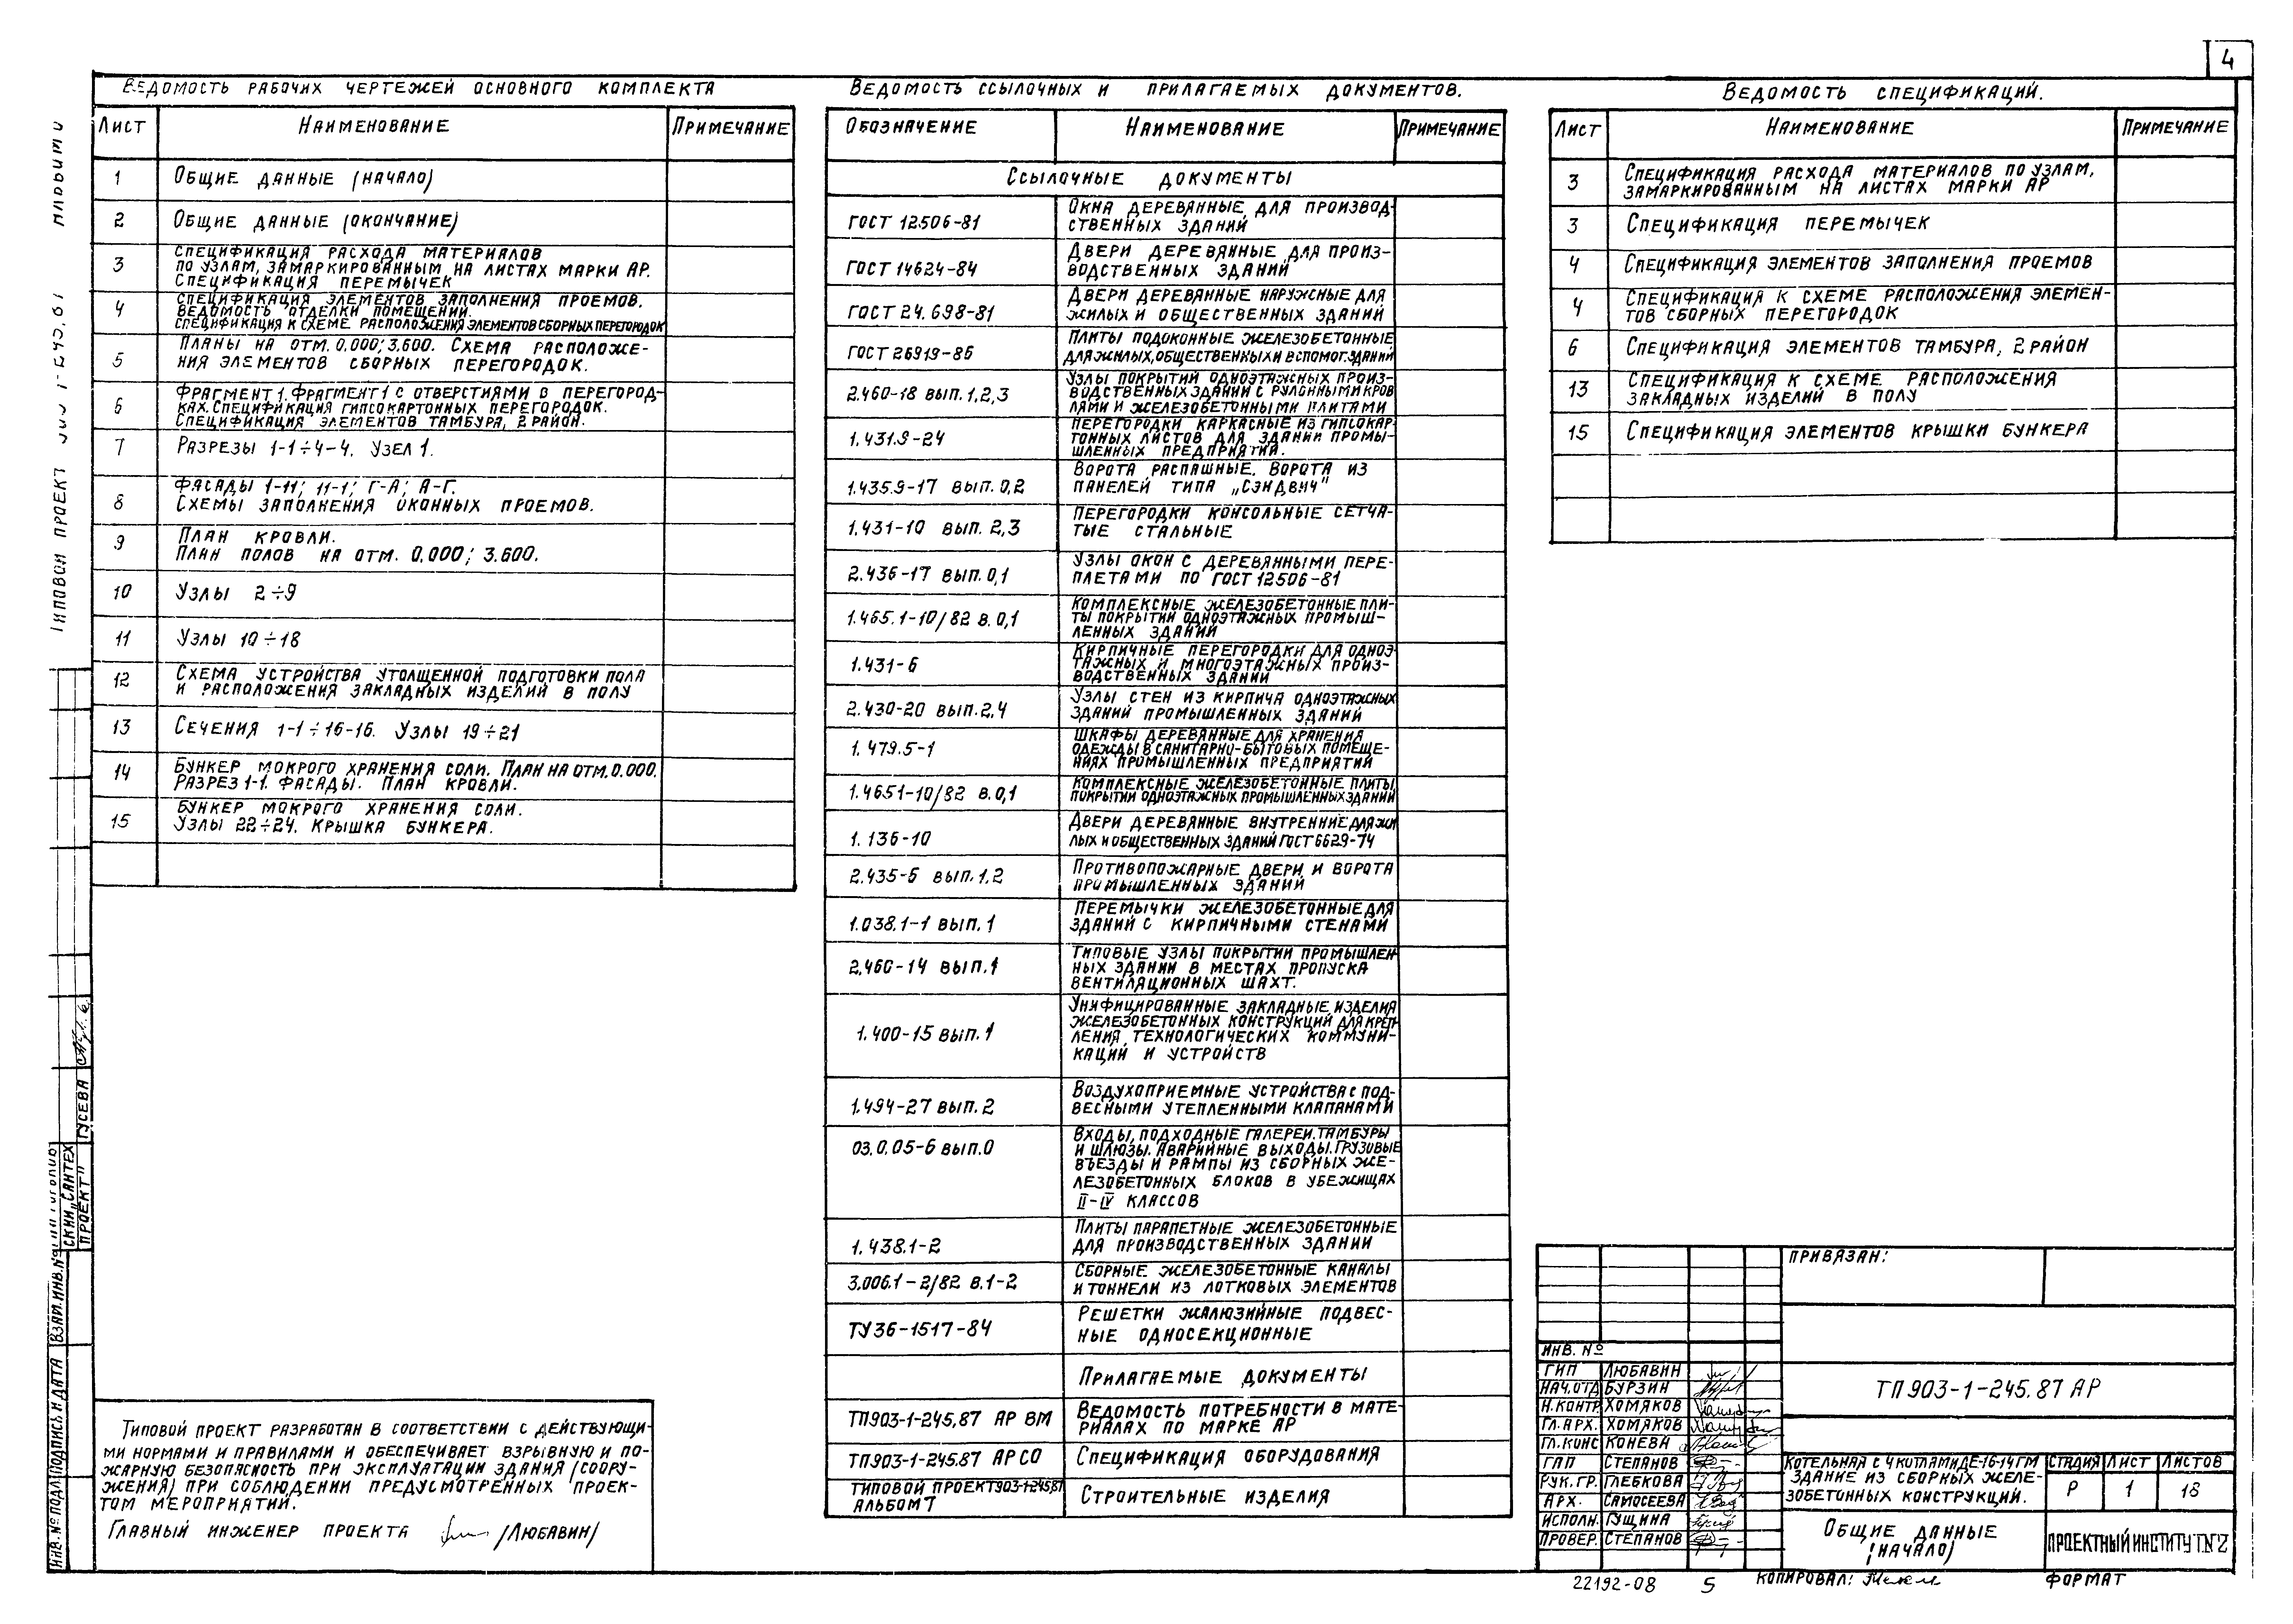 4
Ведомость рабочих чертежей основного комплекта
Лист Наименование Примечание
1 Общие данные (начало)
2 Общие данные (окончание)
3 Спецификация расхода материалов
по узлам, замаркированным на листах марки АР.
Спецификация перемычек
4 Спецификация элементов заполнения проемов.
Ведомость отделки помещений.
Спецификация к схеме расположения элементов сборных перегородок
5 Планы на отм. 0.000; 3.600. Схема расположе-
ния элементов сборных перегородок.
6 Фрагмент 1. Фрагмент 1 с отверстиями в перегород-
ках. Спецификация гипсокартонных перегородок.
Спецификация элементов тамбура, 2 район.
7 Разрезы 1-1÷4-4. Узел 1.
8 Фасады 1-11; 11-1; Г-А; А-Г.
Схемы заполнения оконных проемов.
9 План кровли.
План полов на отм. 0.000; 3.600.
10 Узлы 2÷9
11 Узлы 10÷18
12 Схема устройства утолщенной подготовки пола
и расположения закладных изделий в полу
13 Сечения 1-1÷16-16. Узлы 19÷21
14 Бункер мокрого хранения соли. План на отм. 0.000.
Разрез 1-1. Фасады. План кровли.
15 Бункер мокрого хранения соли.
Узлы 22÷24. Крышка бункера.
Типовой проект разработан в соответствии с действующи-
ми нормами и правилами и обеспечивает взрывную и по-
жарную безопасность при эксплуатации здания (соору-
жения) при соблюдении предусмотренных проек-
том мероприятий.
Главный инженер проекта /Любавин/
Ведомость ссылочных и прилагаемых документов.
Обозначение Наименование Примечание
Ссылочные документы
ГОСТ 12506-81 Окна деревянные для производ-
ственных зданий
ГОСТ 14624-84 Двери деревянные для произ-
водственных зданий
ГОСТ 24.698-81 Двери деревянные наружные для
жилых и общественных зданий
ГОСТ 26919-86 Плиты подоконные железобетонные
для жилых, общественных и вспомог. зданий
2.460-18 вып. 1,2,3 Узлы покрытий одноэтажных произ-
водственных зданий с рулонными кров
лями и железобетонными плитами
1.431.9-24 Перегородки каркасные из гипсокар-
тонных листов для зданий промы-
шленных предприятий.
1.435.9-17 вып. 0,2 Ворота распашные. Ворота из
панелей типа „Сэндвич"
1.431-10 вып. 2,3 Перегородки консольные сетча-
тые стальные
2.436-17 вып. 0,1 Узлы окон с деревянными пере-
плетами по ГОСТ 12506-81
1.465.1-10/82 в.0,1 Комплексные железобетонные пли-
ты покрытий одноэтажных промыш-
ленных зданий
1.431-6 Кирпичные перегородки для одноэ-
тажных и многоэтажных произ-
водственных зданий
2.430-20 вып. 2,4 Узлы стен из кирпича одноэтажных
зданий промышленных зданий
1.479.5-1 Шкафы деревянные для хранения
одежды в санитарно-бытовых помеще-
ниях промышленных предприятий
1.4651-10/82 в.0,1 Комплексные железобетонные плиты
покрытий одноэтажных промышленных зданий
1.136-10 Двери деревянные внутренние для жи
лых и общественных зданий ГОСТ 6629-74
2.435-6 вып. 1,2 Противопожарные двери и ворота
промышленных зданий
1.038.1-1 вып. 1 Перемычки железобетонные для
зданий с кирпичными стенами
2.460-14 вып. 1 Типовые узлы покрытий промышлен
ных зданий в местах пропуска
вентиляционных шахт.
1.400-15 вып. 1 Унифицированные закладные изделия
железобетонных конструкций для креп
ления технологических коммуни-
каций и устройств
1.494-27 вып. 2 Воздухоприемные устройства с под-
весными утепленными клапанами
03.0.05-6 вып. 0 Входы, подходные галереи. Тамбуры
и шлюзы. Аварийные выходы. Грузовые
въезды и рампы из сборных же-
лезобетонных блоков в убежищах
II-IV классов
1.438.1-2 Плиты парапетные железобетонные
для производственных зданий
3.006.1-2/82 в.1-2 Сборные железобетонные каналы
и тоннели из лотковых элементов
ТУ36-1517-84 Решетки жалюзийные подвес-
ные односекционные
Прилагаемые документы
ТП903-1-245.87 АР ВМ Ведомость потребности в мате-
риалах по марке АР
ТП903-1-245.87 АР СО Спецификация оборудования
Типовой проект 903-1-245.87
Альбом 7 Строительные изделия
Ведомость спецификаций.
Лист Наименование Примечание
3 Спецификация расхода материалов по узлам,
замаркированным на листах марки АР
3 Спецификация перемычек
4 Спецификация элементов заполнения проемов
4 Спецификация к схеме расположения элемен-
тов сборных перегородок
6 Спецификация элементов тамбура, 2 район
13 Спецификация к схеме расположения
закладных изделий в полу
15 Спецификация элементов крышки бункера
Привязан:
Инв. №
ГИП Любавин
Нач.отд Бурзин
Н.контр. Хомяков
Гл.арх. Хомяков
Гл.конс Конева
ГАП Степанов
Рук.гр. Глебкова
Арх. Самосеева
Исполн. Гущина
Провер. Степанов
ТП903-1-245.87 АР
Котельная с 4 котлами ДЕ-16-14ГМ
Здание из сборных желе-
зобетонных конструкций.
Стадия Лист Листов
Р 1 18
Общие данные
(начало)
Проектный институт №2
22192-08 5 Копировал: Формат
Типовой проект
Гусева
СКИИ „Сантех
проект"
Взам.инв.№
Подпись и дата
Инв.№ подл.